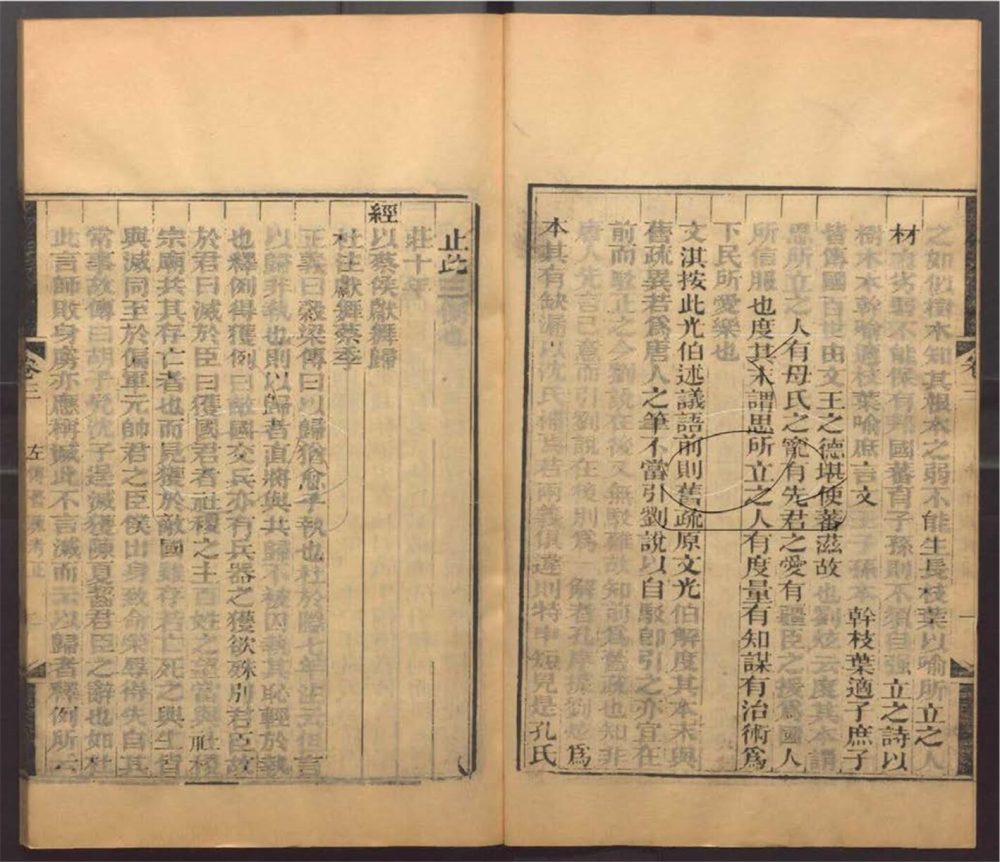 之如似樹木知其根本之弱不能生長枝葉以喻所立之人
材 劣弱不能保有邦國蕃育子孫則不須自強立之詩以
樹木本幹喻適枝葉喻庶言文王子孫本幹枝葉適子庶子
皆傳國百世由文王之德堪使蕃滋故 也劉炫云度其本謂
思所立之人有母氏之寵有先君之愛有疆臣之援爲國人
所信服也度其末謂思所立之人有度量有知謀有治術爲
下民所愛樂也
文淇按此光伯述議語前則舊疏原文光伯解度其本末與
舊疏異若爲唐人之筆不當引劉說以自駁卽引之亦宜在
前而駁正之今劉說在後又無駁難故知前爲舊疏也知非
唐人先言己意而引劉說在後別爲一解者孔序 劉炫爲
本其有缺漏以沈氏補焉若兩義俱違則特申短見是孔氏
卷
一
止此 也
莊十年
經 以蔡侯獻舞歸
杜注獻舞蔡季
正義曰穀梁傳曰以歸猶愈乎執也杜於隱七年注云但言
以歸非執也則以歸者直將與共歸不被囚執其恥輕於執
也釋例得獲例曰敵國交兵亦有兵器之獲欲殊別君臣故
於君曰滅於臣曰獲國君者社稷之主百姓之望當與社稷
宗廟共其存亡者也而見獲於敵國雖存若亡死之與生皆
與滅同至於偏軍元帥君之臣僕出身致命榮辱得失自其
常事故傳曰胡子髡沈子逞滅獲陳夏齧君臣之辭也如杜
此言師敗身虜亦應稱滅此不言滅而云以歸者釋例所云
卷三
左傳舊疏考正